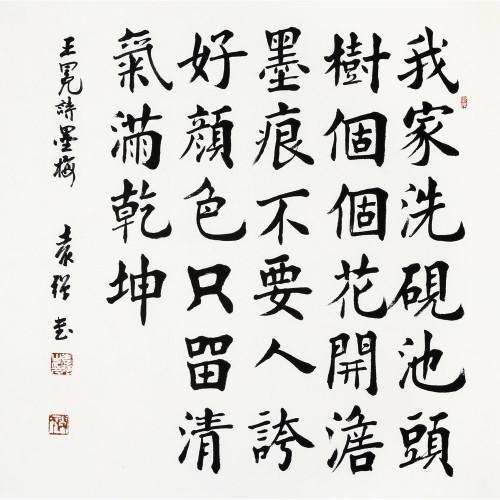 我家洗硯池頭
樹個個花開澹
墨痕不要人誇
好顔色只留清
氣滿乾坤
王冕詩墨梅 袁 書